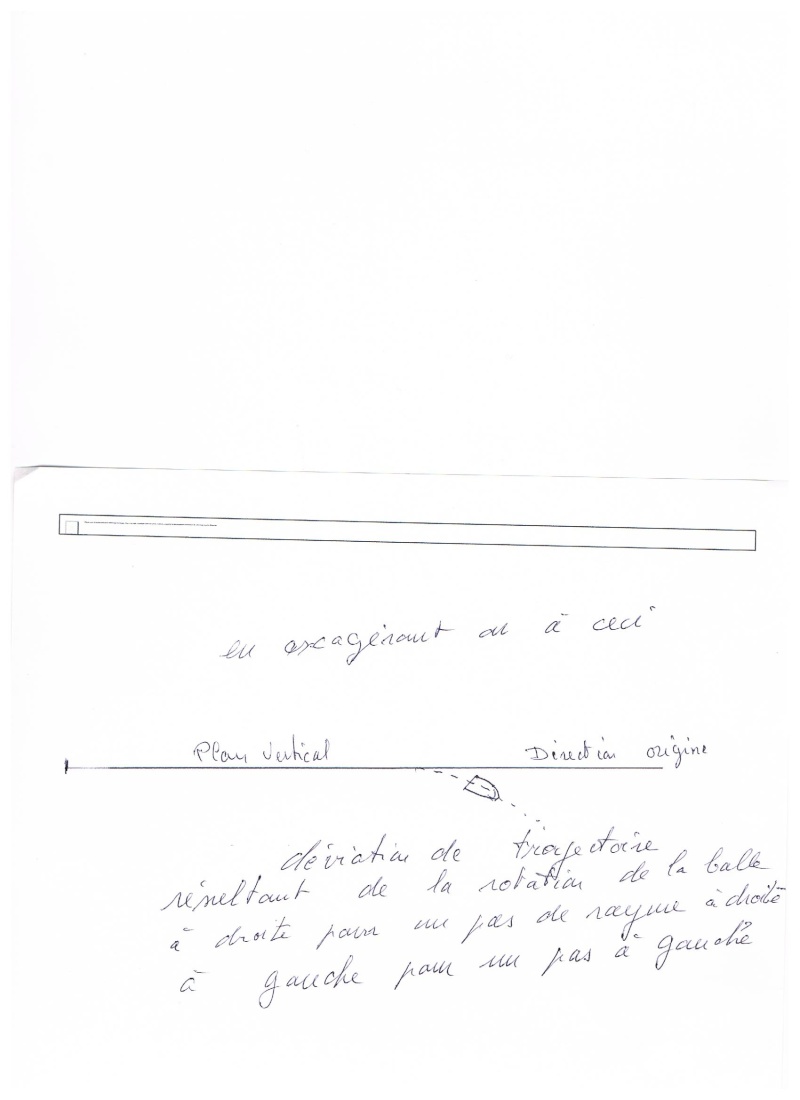 en exagérant on à ceci
Plan Vertical Direction origine
déviation de trajectoire
résultant de la rotation de la balle
à droite pour un pas de rayure à droite
à gauche pour un pas à gauche